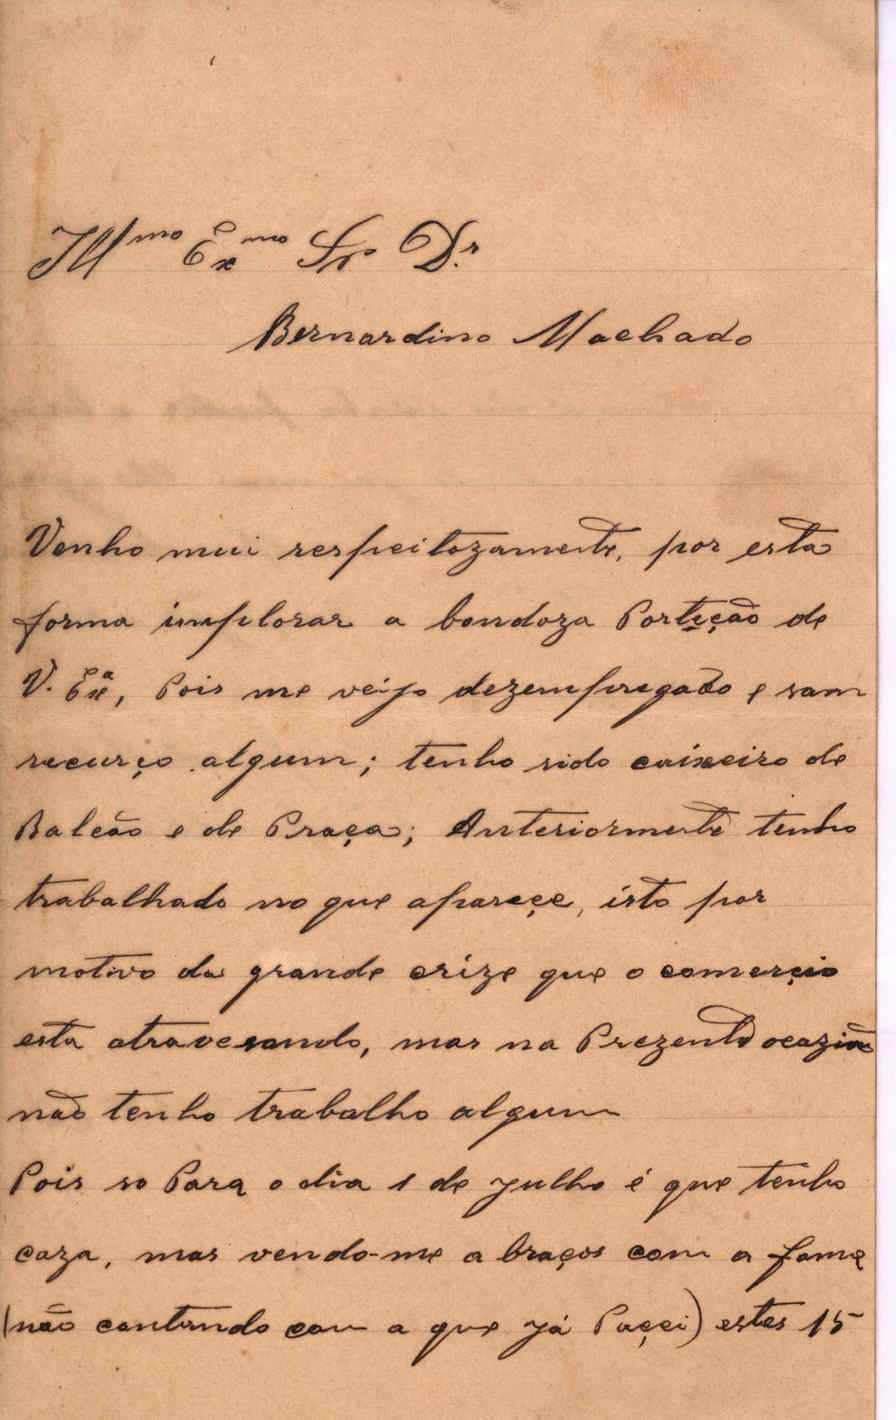 Illmo Exmo Snr Dr
Bernardino Machado
Venho mui respeitozamente, por esta
forma implorar a bondoza Portição de
V. Exª, Pois me veijo dezempregado e sam
recurço algum; tenho sido caixeiro de
Balcão e de Praça; Anteriormente tenho
trabalhado no que apareçe, isto por
motivo da grande crize que o comerçio
esta atravesando, mas na Prezente ocazião
não tenho trabalho algum
Pois so Para o dia 1 de julho é que tenho
caza, mas vendo-me a braços com a fome
(não contando com a que já Paçei) estes 15